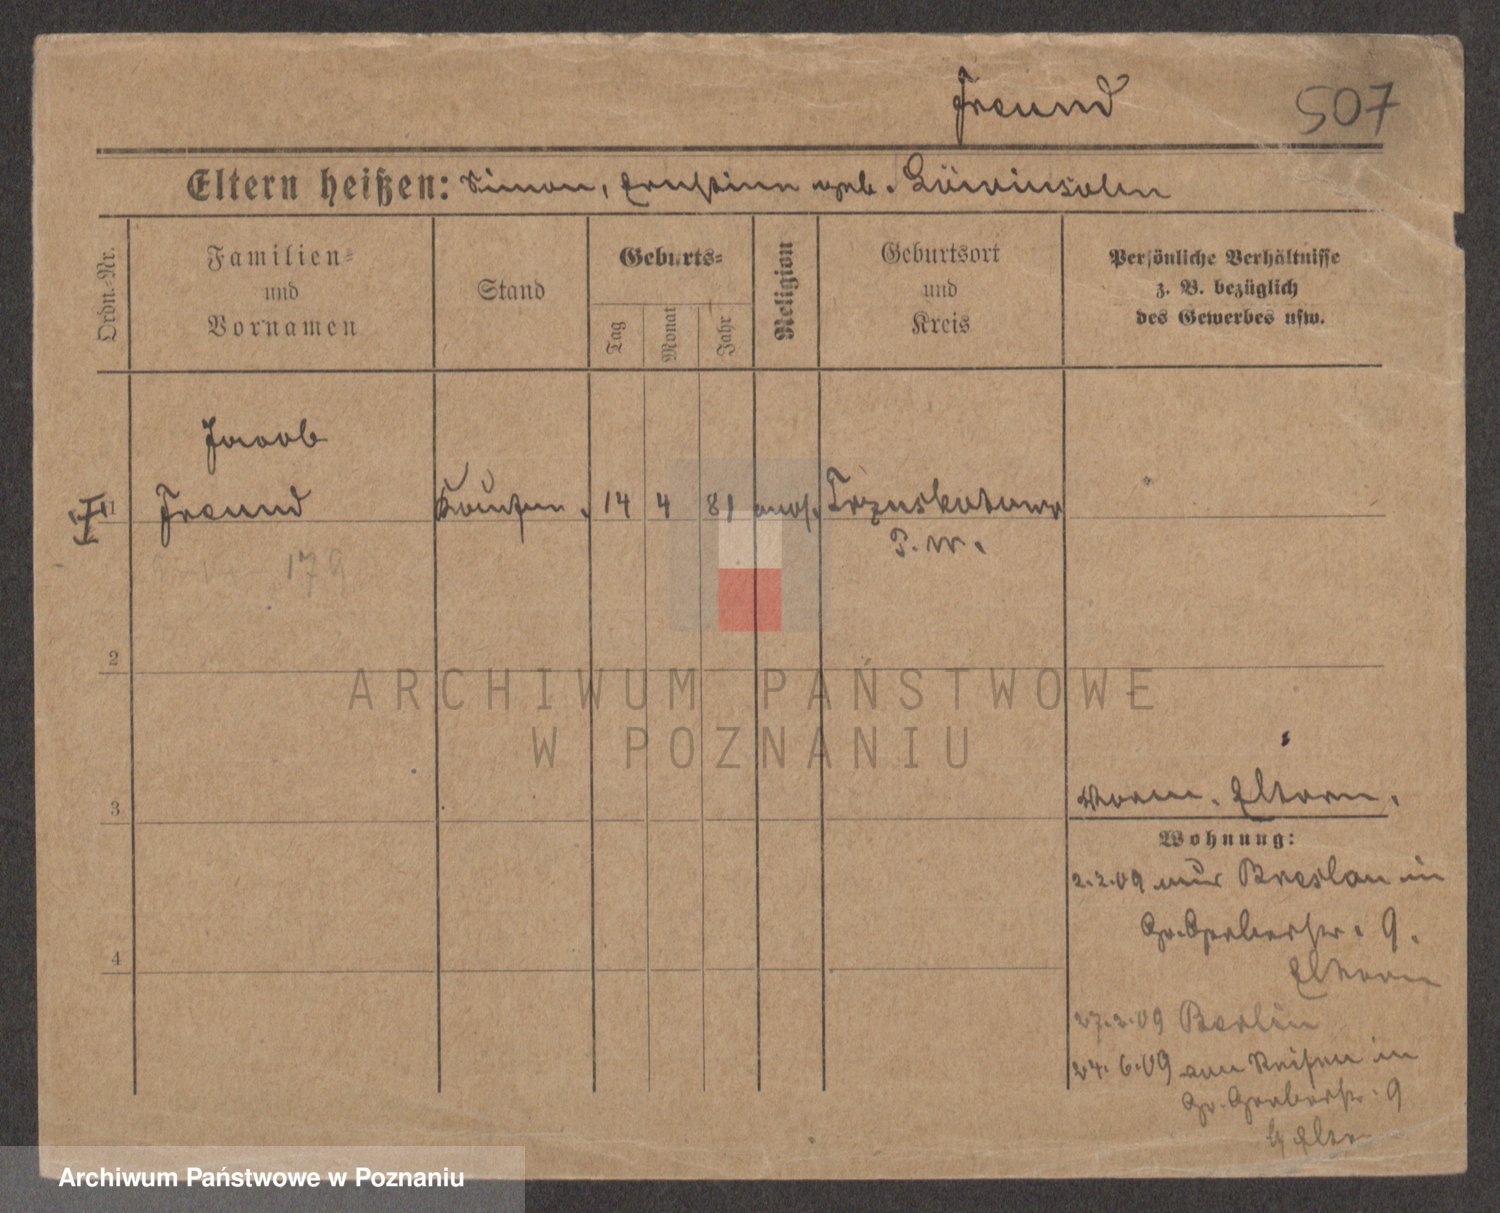 Freund
507
Eltern heißen: Simon, Ernstine geb. Löwinsohn
Ordn.-Nr.
Familien-
und
Vornamen
Stand
Geburts-
Tag
Monat
Jahr
Religion
Geburtsort
und
Kreis
Persönliche Verhältnisse
z. B. bezüglich
des Gewerbes usw.
Jacob
1 Freund Kaufm. 14 4 81 mos. Trzuskotowo
P. W.
179
2
3
Eltern.
Wohnung:
2.2.09 aus Breslau in
Gr. Gerberstr. 9.
Eltern
4
27.2.09 Berlin
24.6.09 von Reisen in
Gr. Gerberstr. 9
ARCHIWUM PAŃSTWOWE
W POZNANIU
Archiwum Państwowe w Poznaniu